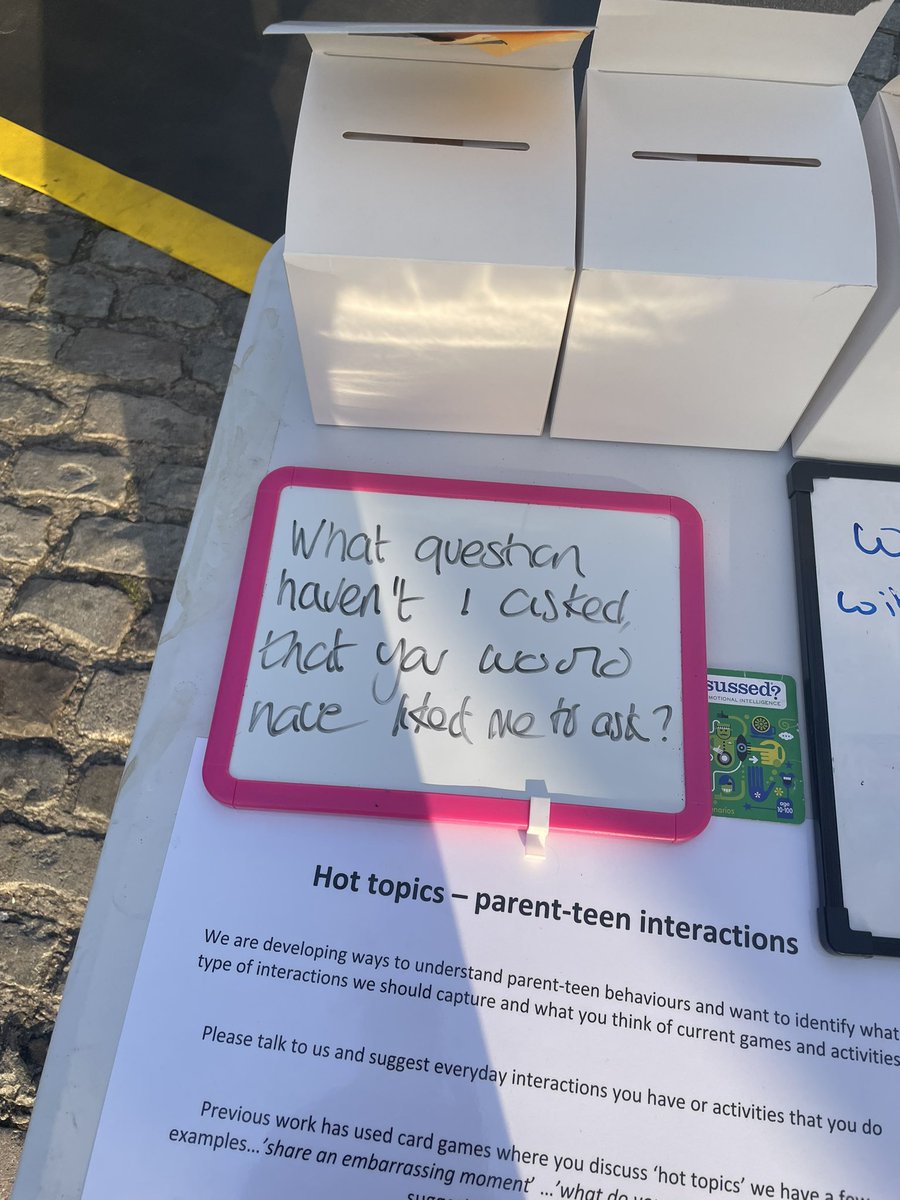 What question
haven't I asked,
that you would
have liked me to ask?
sussed?
MOTIONAL INTELLIGENCE
age
10-100
narios
Hot topics – parent-teen interactions
We are developing ways to understand parent-teen behaviours and want to identify what
type of interactions we should capture and what you think of current games and activities
Please talk to us and suggest everyday interactions you have or activities that you do
Previous work has used card games where you discuss 'hot topics' we have a few
examples...'share an embarrassing moment' ...'what do